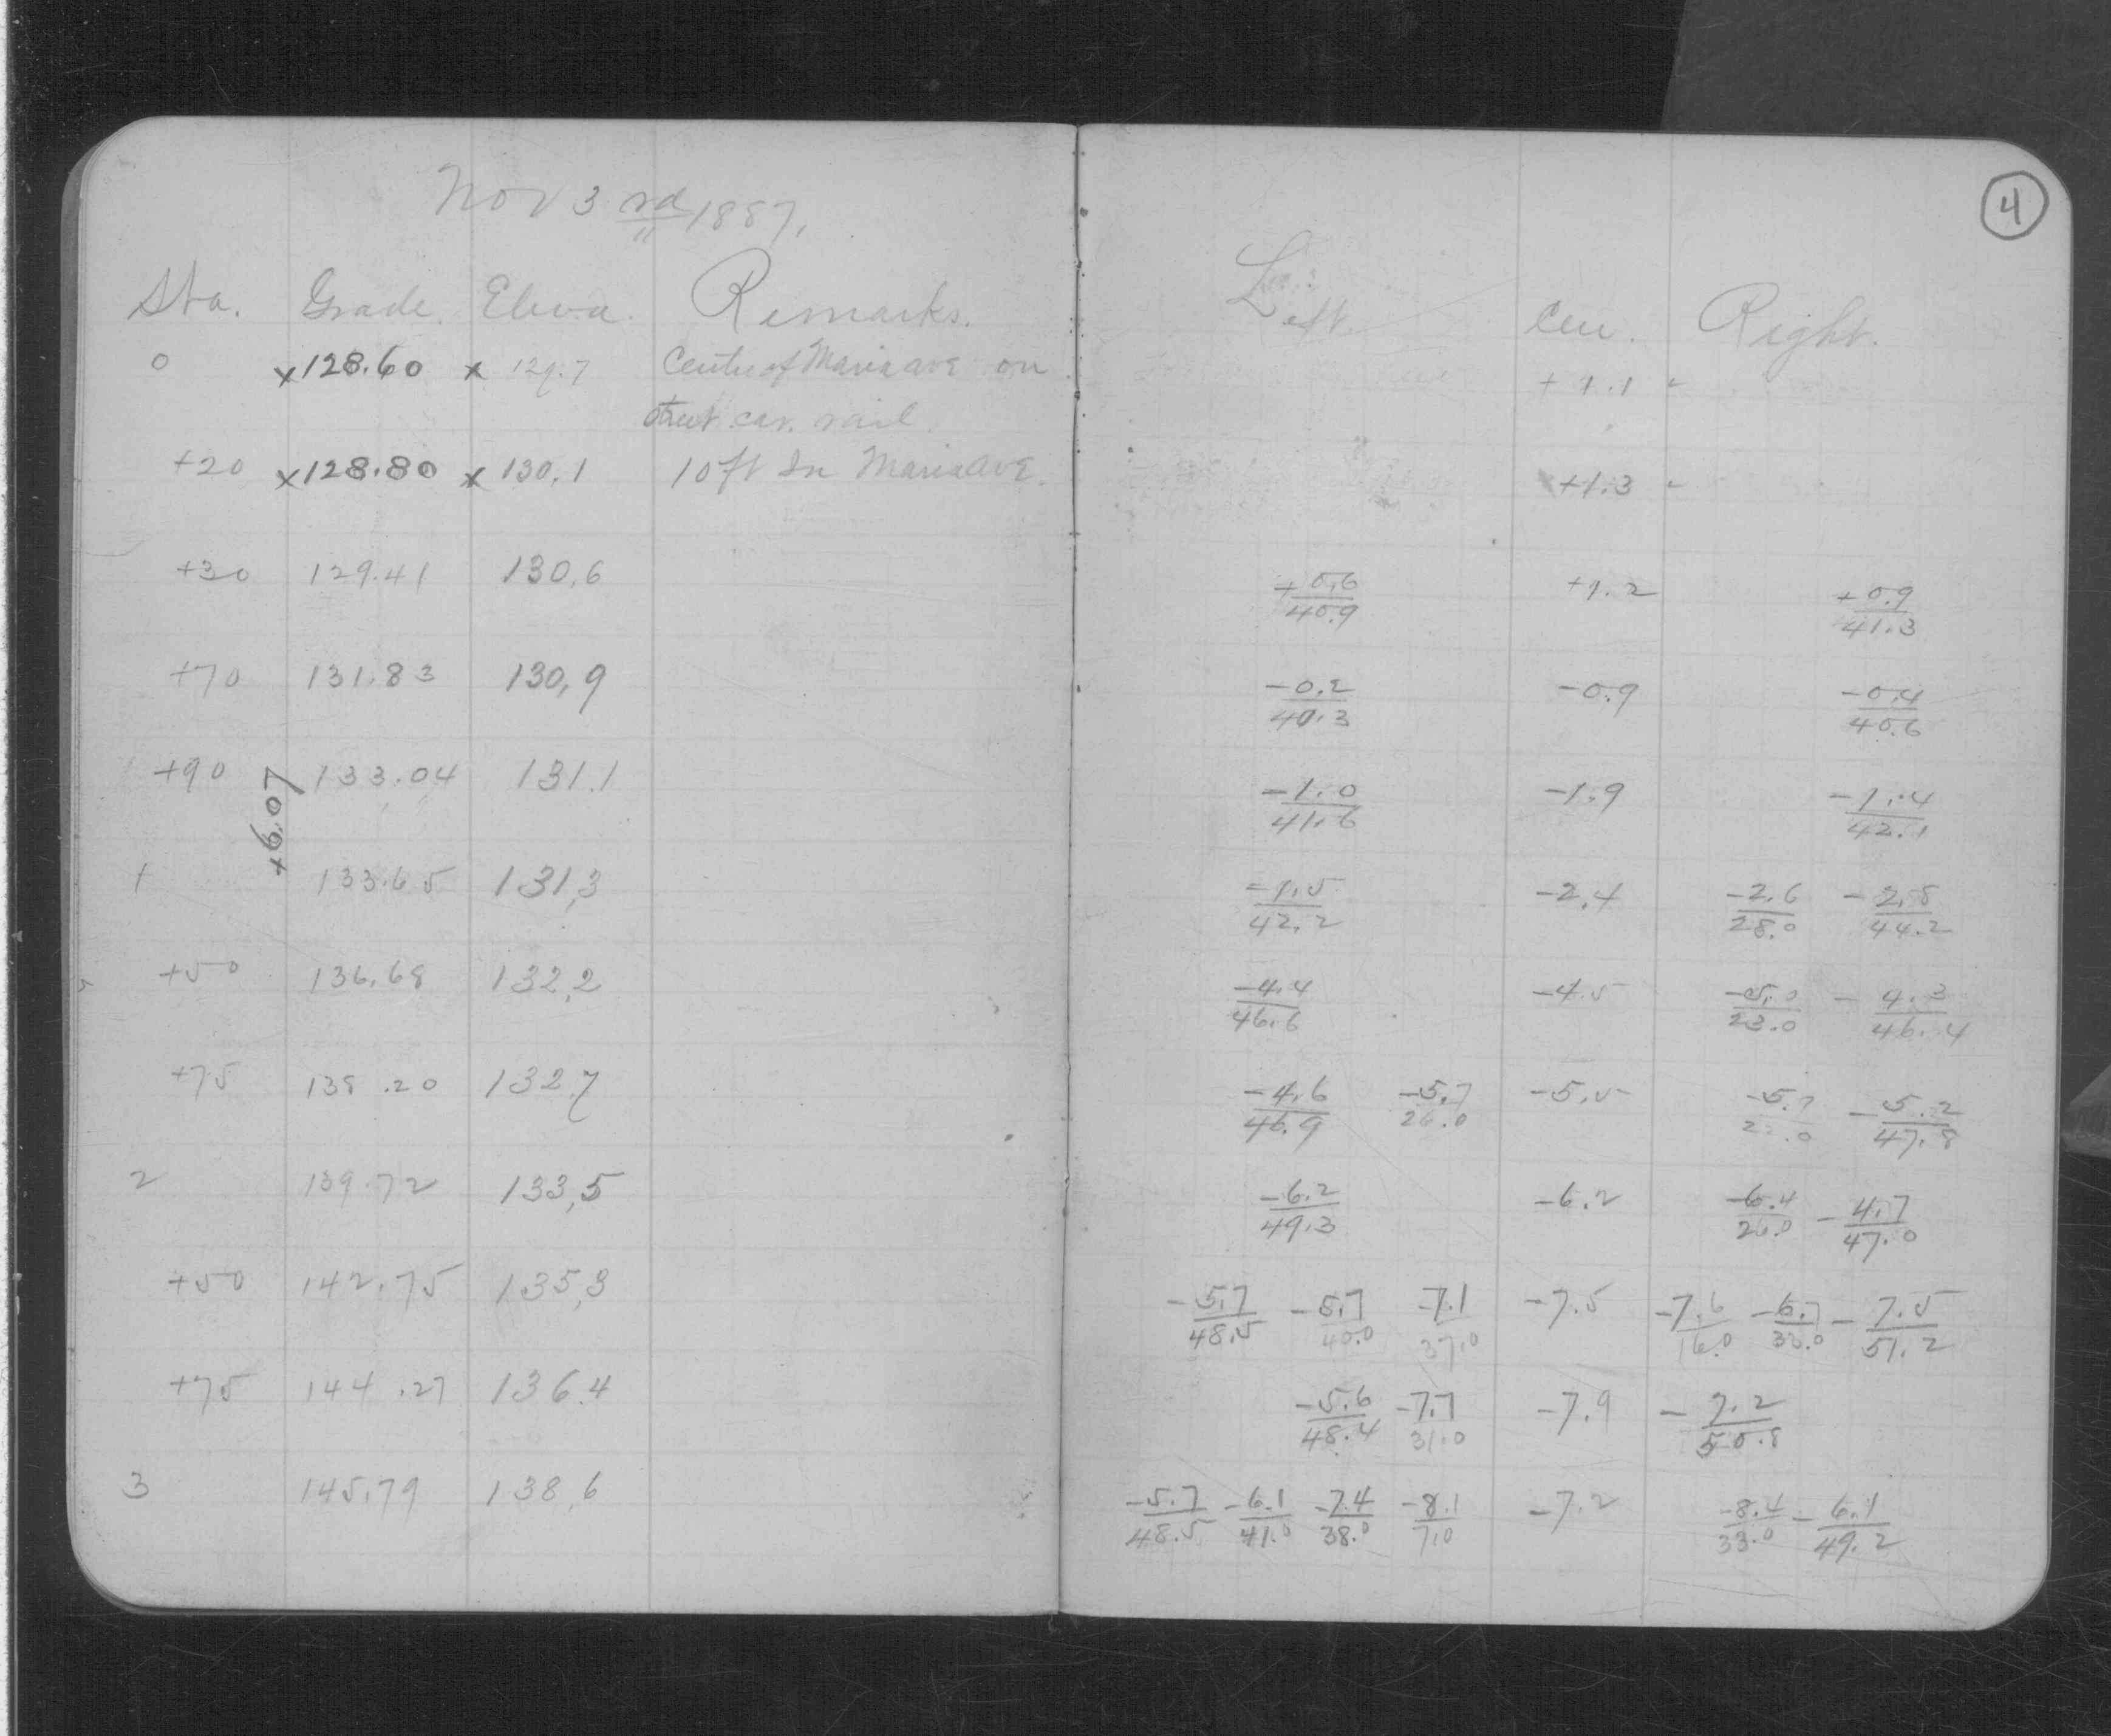 4
Nov 3rd 1887.
Sta. Grade. Eleva. Remarks. Left. Cen. Right.
0 x128.60 x 129.7 Centre of Maria ave on +1.1
street car rail.
+20 x128.80 x 130.1 10 ft In Maria ave. +1.3
+30 129.41 130.6 +0.6/40.9 +1.2 +0.9/41.3
+70 131.83 130.9 -0.2/40.3 -0.9 -0.4/40.6
+90 133.04 131.1 -1.0/41.6 -1.9 -1.4/42.1
+6.07
1 133.65 131.3 -1.5/42.2 -2.4 -2.6/28.0 -2.8/44.2
+50 136.68 132.2 -4.4/46.6 -4.5 -5.0/23.0 -4.3/46.4
+75 138.20 132.7 -4.6/46.9 -5.7/26.0 -5.5 -5.7 -5.2/47.8
2 139.72 133.5 -6.2/49.3 -6.2 -6.4/26.0 -4.7/47.0
+50 142.75 135.3 -5.7/48.5 -5.7/40.0 -7.1/37.0 -7.5 -7.6/16.0 -6.7/33.0 -7.5/51.2
+75 144.27 136.4 -5.6/48.4 -7.7/31.0 -7.9 -7.2/50.8
3 145.79 138.6 -5.7/48.5 -6.1/41.0 -7.4/38.0 -8.1/7.0 -7.2 -8.4/33.0 -6.1/49.2